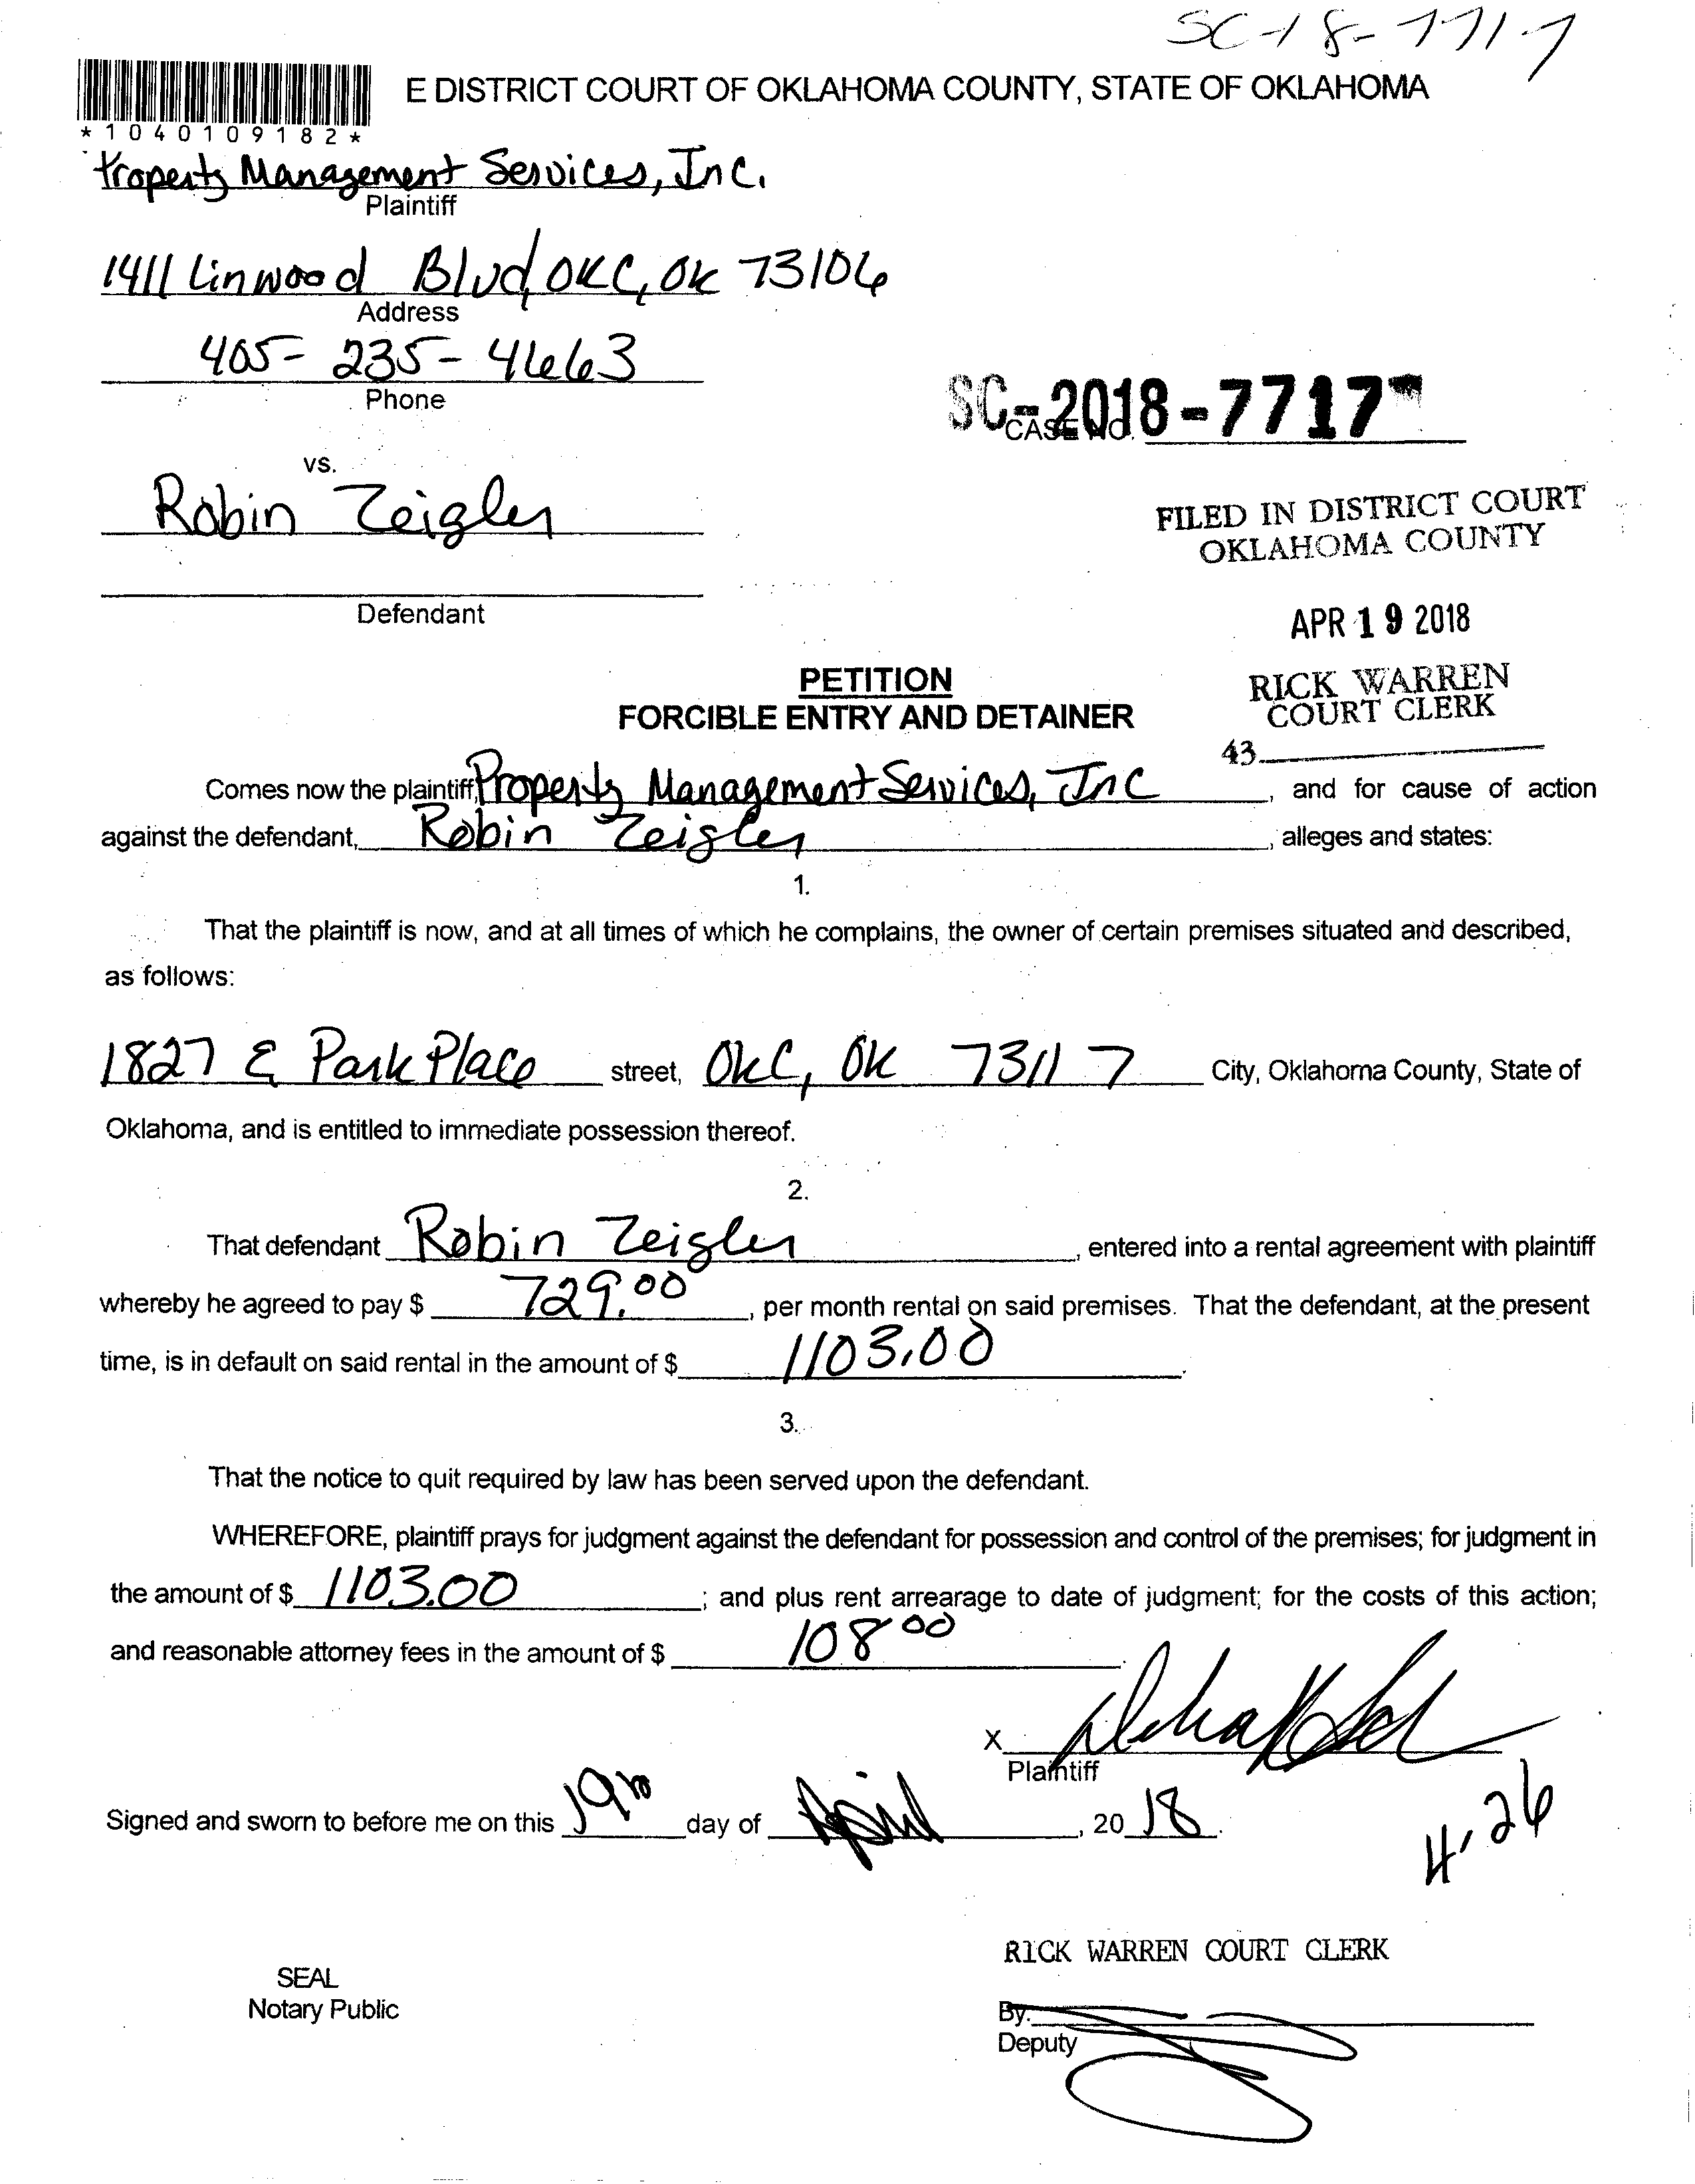 SC-18-7717
E DISTRICT COURT OF OKLAHOMA COUNTY, STATE OF OKLAHOMA
*1040109182*
Property Management Services, Inc.
Plaintiff
1411 Linwood Blvd, OKC, OK 73106
Address
405-235-4663
Phone
SC-2018-7717
CASE NO.
vs.
Robin Zeigler
FILED IN DISTRICT COURT
OKLAHOMA COUNTY
Defendant
APR 19 2018
PETITION
RICK WARREN
FORCIBLE ENTRY AND DETAINER
COURT CLERK
43
Comes now the plaintiff, Property Management Services, Inc, and for cause of action
against the defendant, Robin Zeigler, alleges and states:
1.
That the plaintiff is now, and at all times of which he complains, the owner of certain premises situated and described,
as follows:
1827 E Park Place street, OKC, OK 73117 City, Oklahoma County, State of
Oklahoma, and is entitled to immediate possession thereof.
2.
That defendant Robin Zeigler, entered into a rental agreement with plaintiff
whereby he agreed to pay $ 729.00, per month rental on said premises. That the defendant, at the present
time, is in default on said rental in the amount of $ 1103.00.
3.
That the notice to quit required by law has been served upon the defendant.
WHEREFORE, plaintiff prays for judgment against the defendant for possession and control of the premises; for judgment in
the amount of $ 1103.00; and plus rent arrearage to date of judgment; for the costs of this action;
and reasonable attorney fees in the amount of $ 108 00.
X
Plaintiff
Signed and sworn to before me on this 19th day of April, 20 18.
4.26
RICK WARREN COURT CLERK
SEAL
Notary Public
By:
Deputy